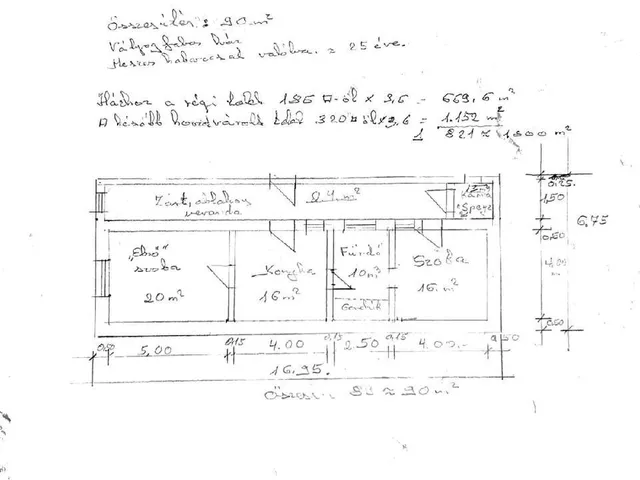 Összesítés: 90 m²
Vályogfalas ház
Meszes habarccsal vakolva. = 25 éve.
Házhoz a régi telek 186 □-öl × 3,6 = 669,6 m²
A később hozzávásárolt telek 320 □öl × 3,6 = 1.152 m²
1 821 ≈ 1.800 m²
Zárt, ablakos veranda
24 m²
Kamra "Speiz"
0,25
1,50
0,50
4,00
0,50
6,75
„Első" szoba
20 m²
Konyha
16 m²
Fürdő
10 m²
Szoba
16 m²
0,50 5,00 0,15 4.00 0,15 2.50 0,15 4.00.- 0,50
16.95.
Összesen: 89 ≈ 90 m²